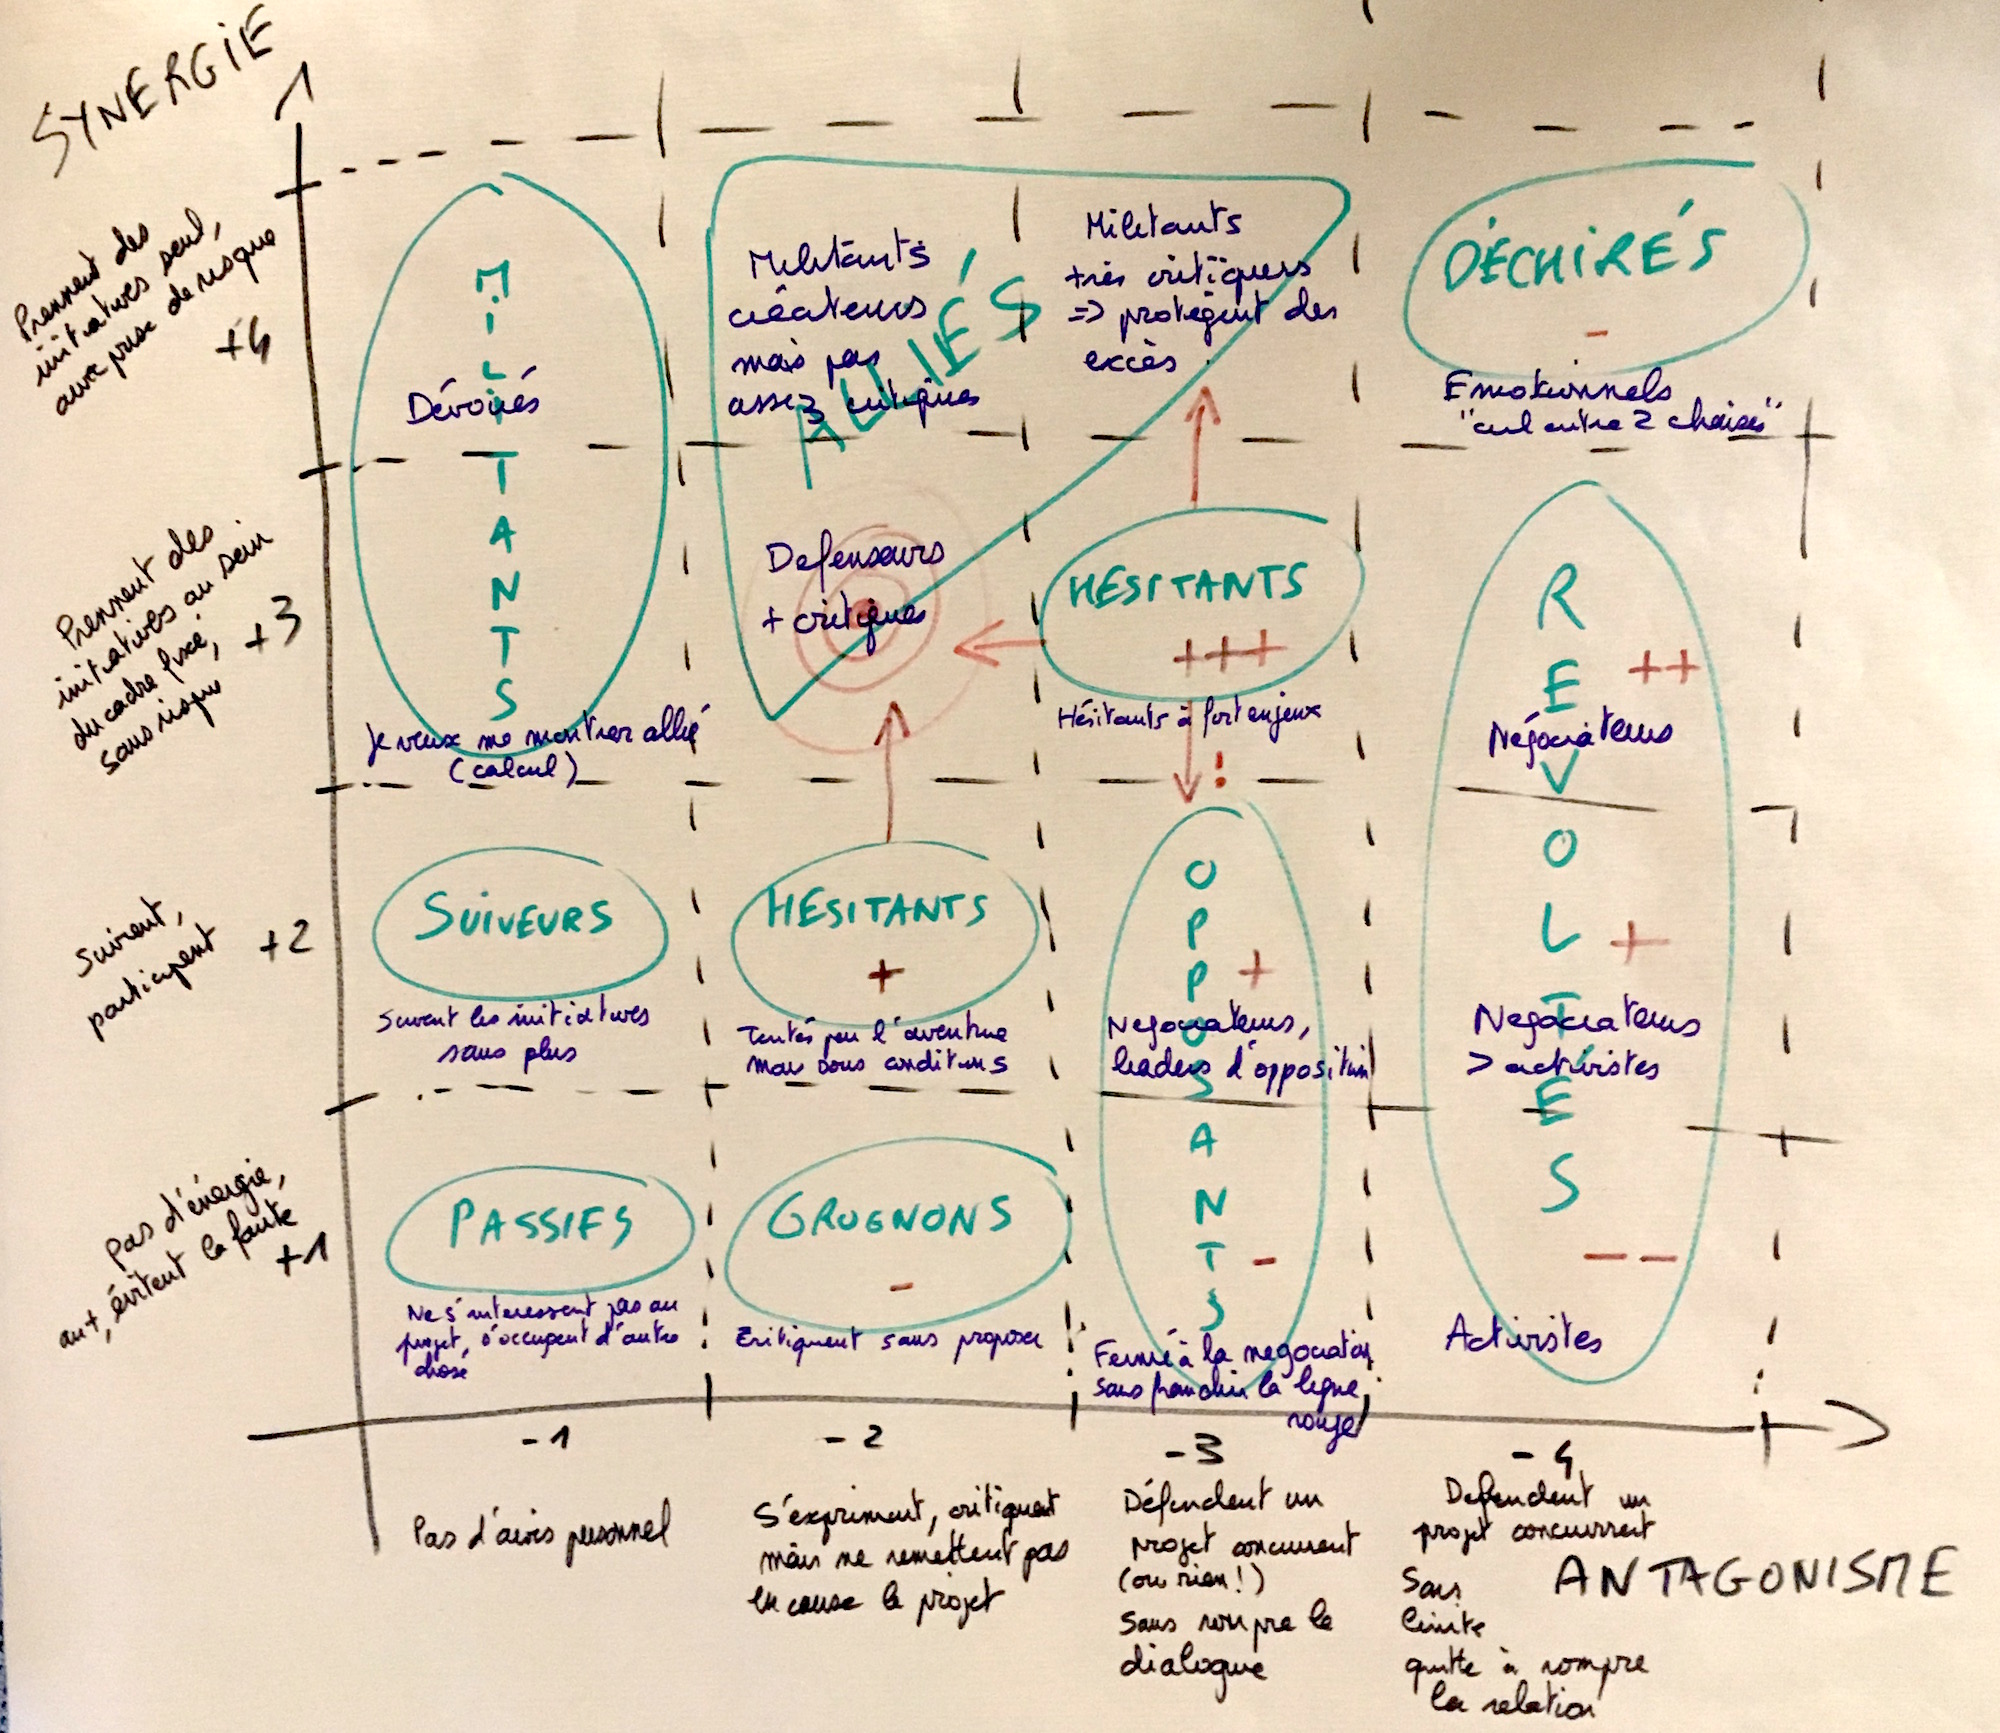 SYNERGIE
Prennent des
initiatives seul,
avec prise de risque
+4
MILITANTS
Dévoués
Militants
créateurs
mais pas
assez critiques
ALLIÉS
Militants
très critiques
=> protègent des
excès
DÉCHIRÉS
-
Emotionnels
"cul entre 2 chaises"
Prennent des
initiatives au sein
du cadre fixé,
sans risque
+3
Je veux me montrer allié
(calcul)
Defenseurs
+ critiques
HESITANTS
+++
Hésitants à fort enjeux
!
REVOLTÉS
++
Négociateurs
Suivent,
participent
+2
SUIVEURS
Suivent les initiatives
sans plus
HESITANTS
+
Tentés par l'aventure
mais sous conditions
OPPOSANTS
+
Negociateurs,
leaders d'opposition
+
Negociateurs
> activistes
pas d'énergie,
évitent la faute
+1
PASSIFS
Ne s'interessent pas au
projet, s'occupent d'autre
chose
GROGNONS
-
Critiquent sans proposer
-
Fermé à la negociation
sans franchir la ligne
rouge
--
Activistes
-1
-2
-3
-4
Pas d'avis personnel
S'expriment, critiquent
mais ne remettent pas
en cause le projet
Défendent un
projet concurrent
(ou rien!)
Sans rompre le
dialogue
Defendent un
projet concurrent
Sans
limite
quitte à rompre
la relation
ANTAGONISME